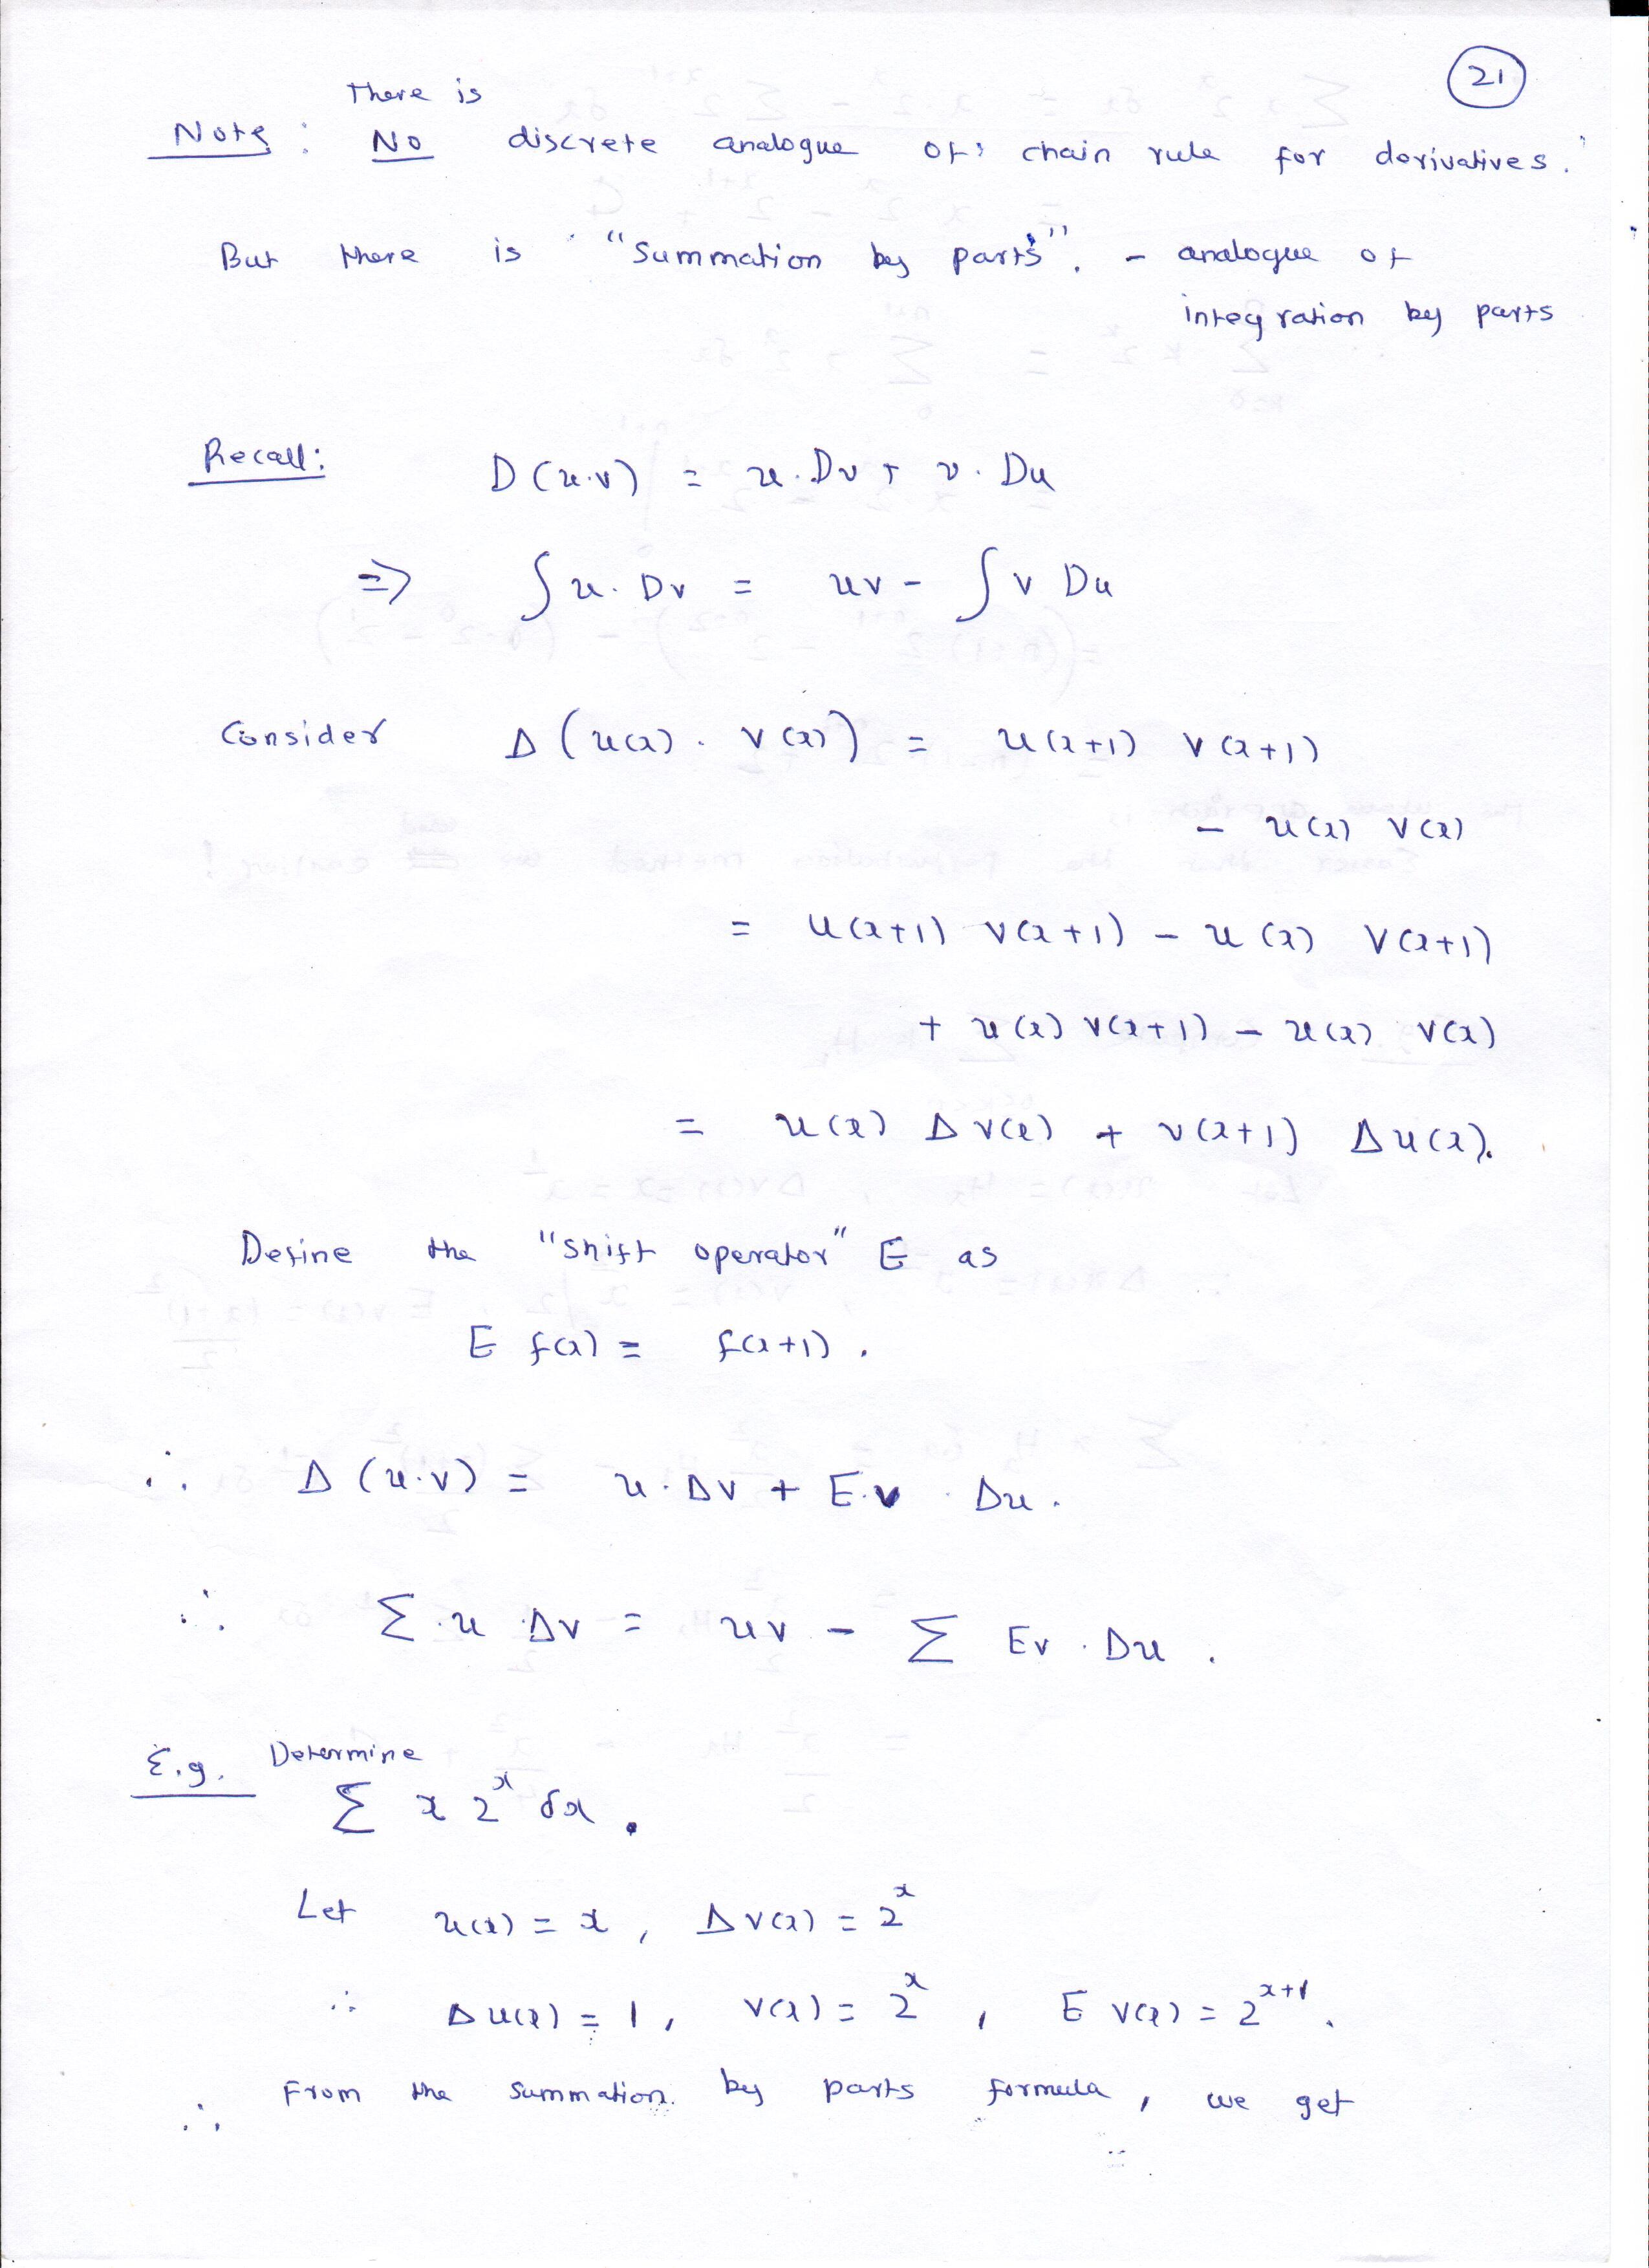 21
There is
Note : No discrete analogue of chain rule for derivatives.
But there is "Summation by parts". - analogue of
integration by parts
Recall: D(u.v) = u.Dv + v.Du
=> ∫ u.Dv = uv - ∫ v Du
Consider Δ(u(x) . v(x)) = u(x+1) v(x+1)
- u(x) v(x)
= u(x+1) v(x+1) - u(x) v(x+1)
+ u(x) v(x+1) - u(x) v(x)
= u(x) Δv(x) + v(x+1) Δu(x).
Define the "shift operator" E as
E f(x) = f(x+1).
∴ Δ(u.v) = u.Δv + E.v . Δu.
∴ Σ.u Δv = uv - Σ Ev . Δu .
E.g. Determine
Σ x 2^x δx .
Let u(x) = x , Δv(x) = 2^x
∴ Δu(x) = 1, v(x) = 2^x , E v(x) = 2^{x+1}.
∴ From the summation by parts formula, we get